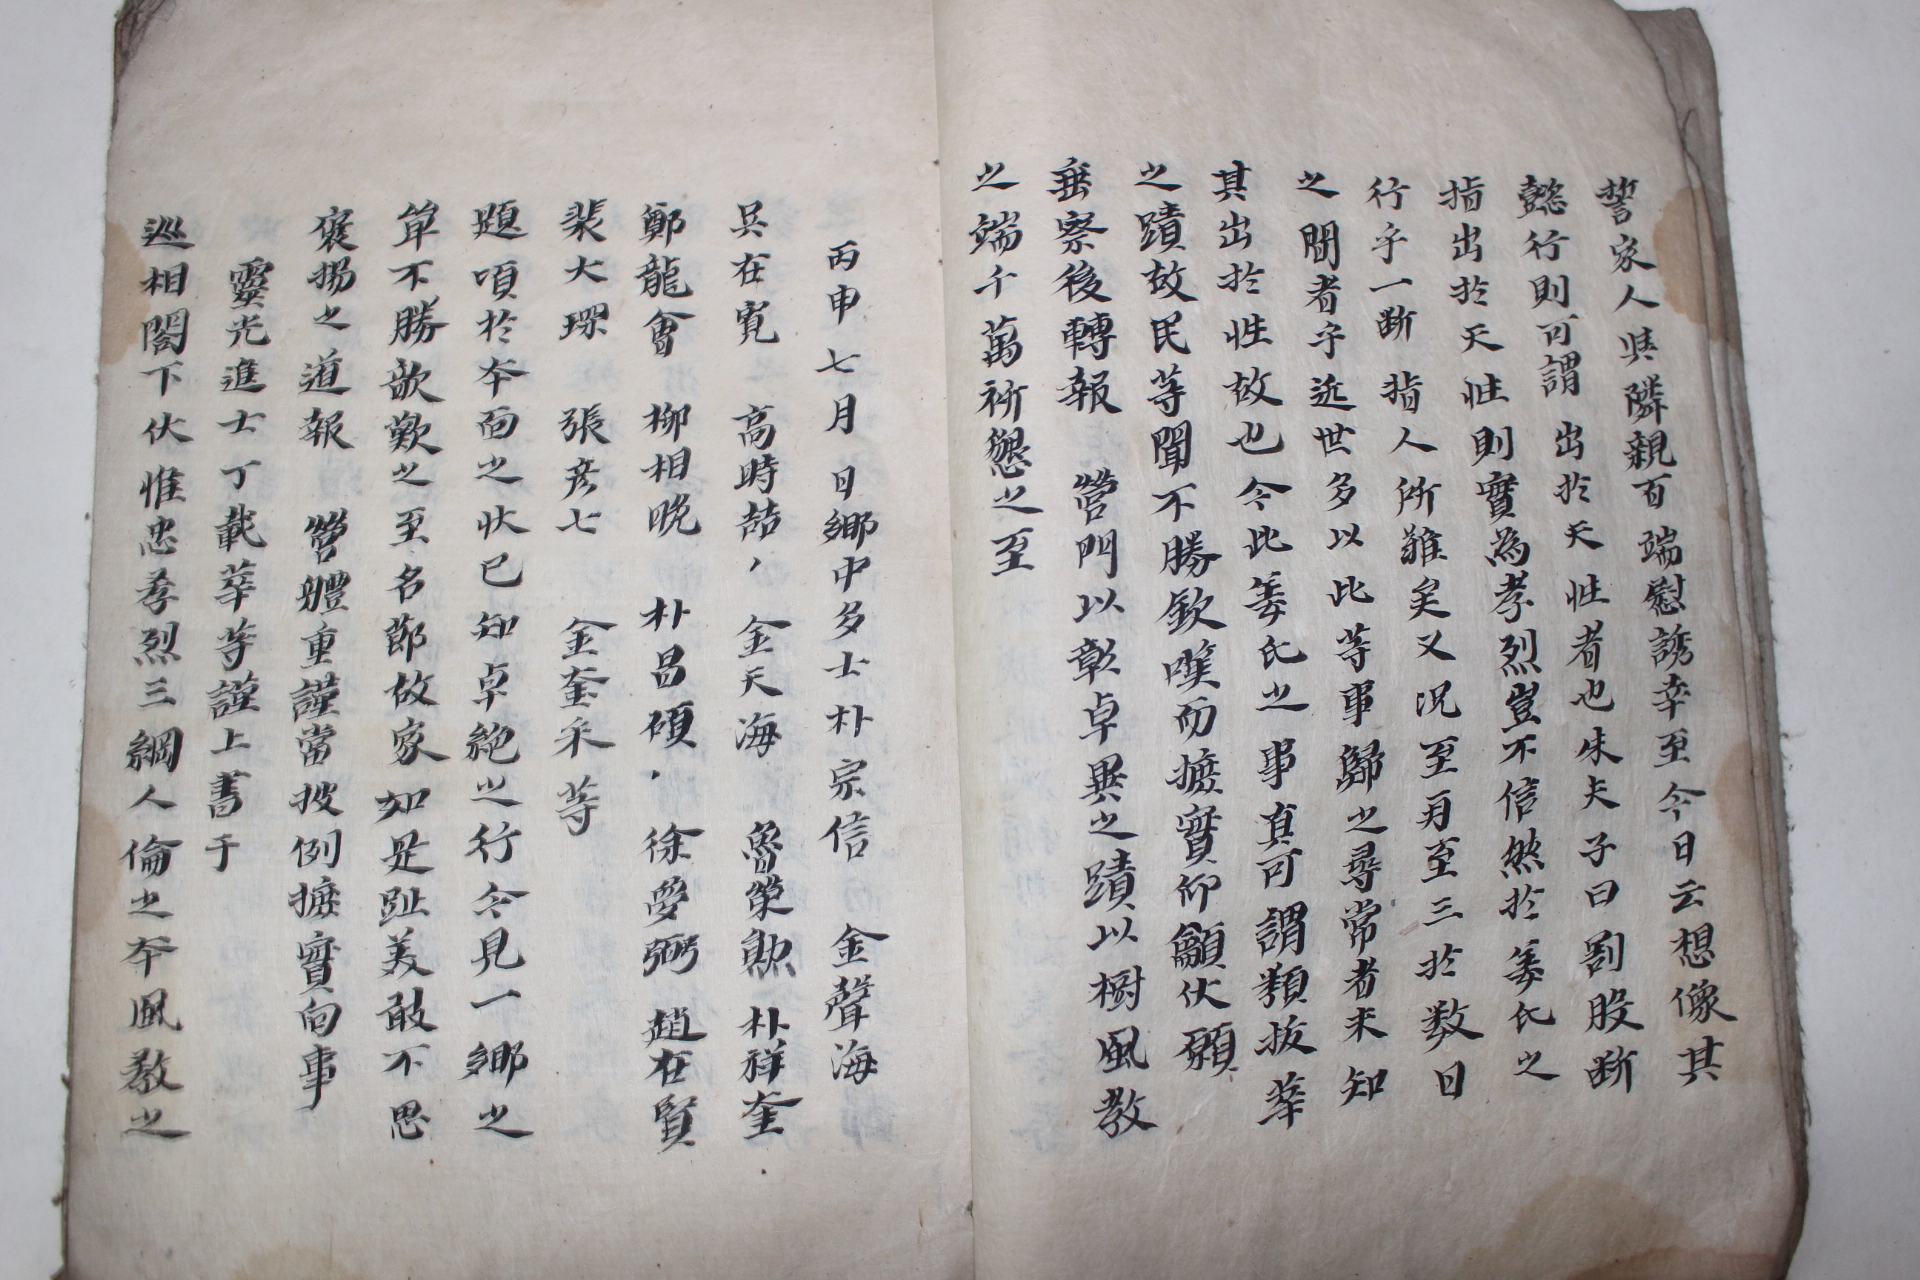 誓家人與隣親百端慰誘幸至今日云想像其
懿行則可謂出於天性者也朱夫子曰割股斷
指出於天性則實為孝烈豈不信然於姜氏之
行乎一斷指人所難矣又況至再至三於数日
之間者乎近世多以此等事歸之尋常者未知
其出於性故也今此姜氏之事真可謂類拔萃
之蹟故民等聞不勝欽嘆而摭實仰籲伏願
垂察後轉報 營門以彰卓異之蹟以樹風教
之端千萬祈懇之至
丙申七月日鄉中多士朴宗信 金聲海
吳在寬 高時喆 金天海 魯榮勲 朴祥奎
鄭龍會 柳相晩 朴昌碩 徐夢弼 趙在賢
裴大琛 張彦七 金奎采等
題項於本面之狀已知卓絶之行今見一鄉之
單不勝歆歎之至名節故家如是趾美敢不思
褒揚之道報 營體重謹當披例摭實向事
靈光進士丁載莘等謹上書于
巡相閤下伏惟忠孝烈三綱人倫之本風教之